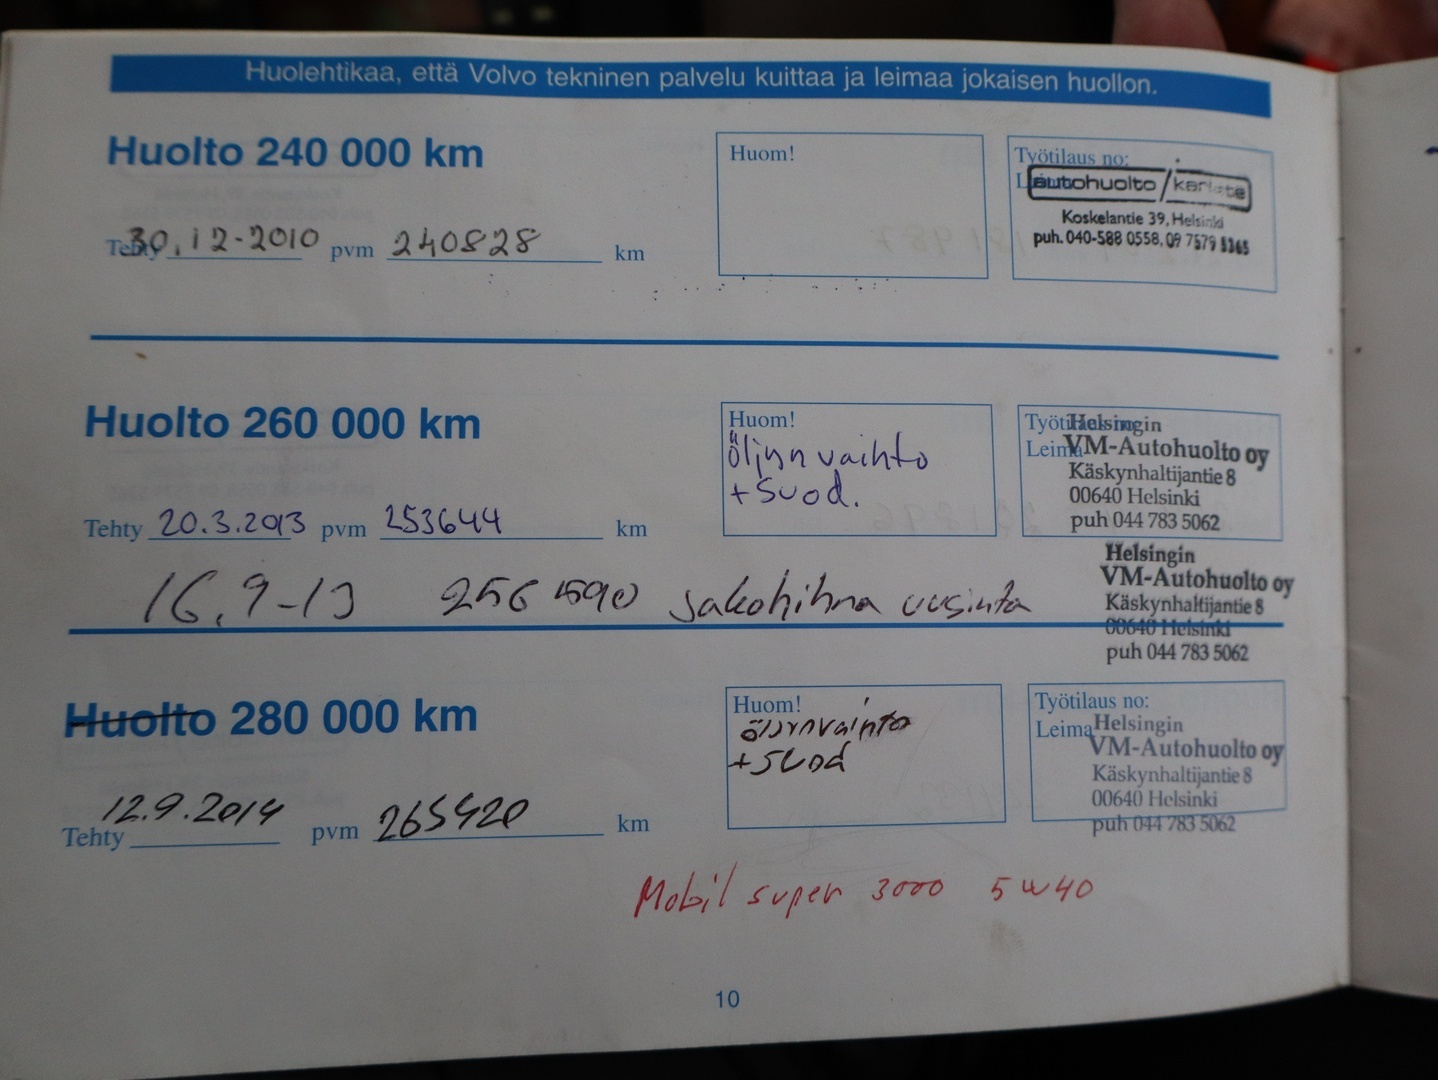 Huolehtikaa, että Volvo tekninen palvelu kuittaa ja leimaa jokaisen huollon.
Huolto 240 000 km
Tehty 30.12-2010 pvm 240828 km
Huom!
Työtilaus no:
autohuolto / kariste
Koskelantie 39, Helsinki
puh. 040-588 0558, 09 7579 5365
Huolto 260 000 km
Tehty 20.3.2013 pvm 253644 km
Huom!
Öljynvaihto
+ Suod.
Työtilaus no:
Leima
Helsingin
VM-Autohuolto oy
Käskynhaltijantie 8
00640 Helsinki
puh 044 783 5062
16.9-13 256590 Jakohihna uusinta
Helsingin
VM-Autohuolto oy
Käskynhaltijantie 8
00640 Helsinki
puh 044 783 5062
Huolto 280 000 km
Tehty 12.9.2014 pvm 265420 km
Huom!
öljynvaihto
+ Suod
Työtilaus no:
Leima
Helsingin
VM-Autohuolto oy
Käskynhaltijantie 8
00640 Helsinki
puh 044 783 5062
Mobil super 3000 5w40
10